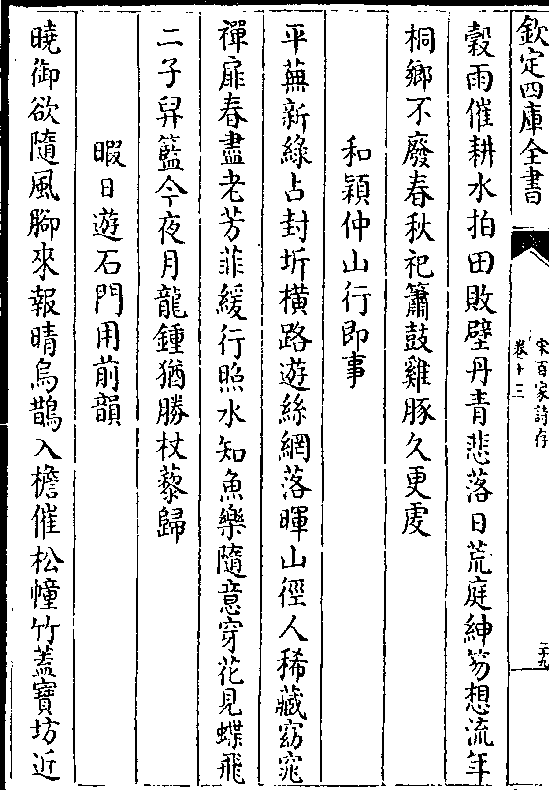 欽定四庫全書
宋百家詩存
卷十三
二十九
穀雨催耕水拍田敗壁丹青悲落日荒庭紳笏想流年
桐鄉不廢春秋祀簫鼓雞豚久更虔
和穎仲山行即事
平蕪新綠占封圻橫路遊絲網落暉山徑人稀藏窈窕
禪扉春盡老芳菲緩行照水知魚樂隨意穿花見蝶飛
二子舁籃今夜月龍鍾猶勝杖藜歸
暇日遊石門用前韻
曉御欲隨風腳來報晴烏鵲入檐催松幢竹蓋寶坊近